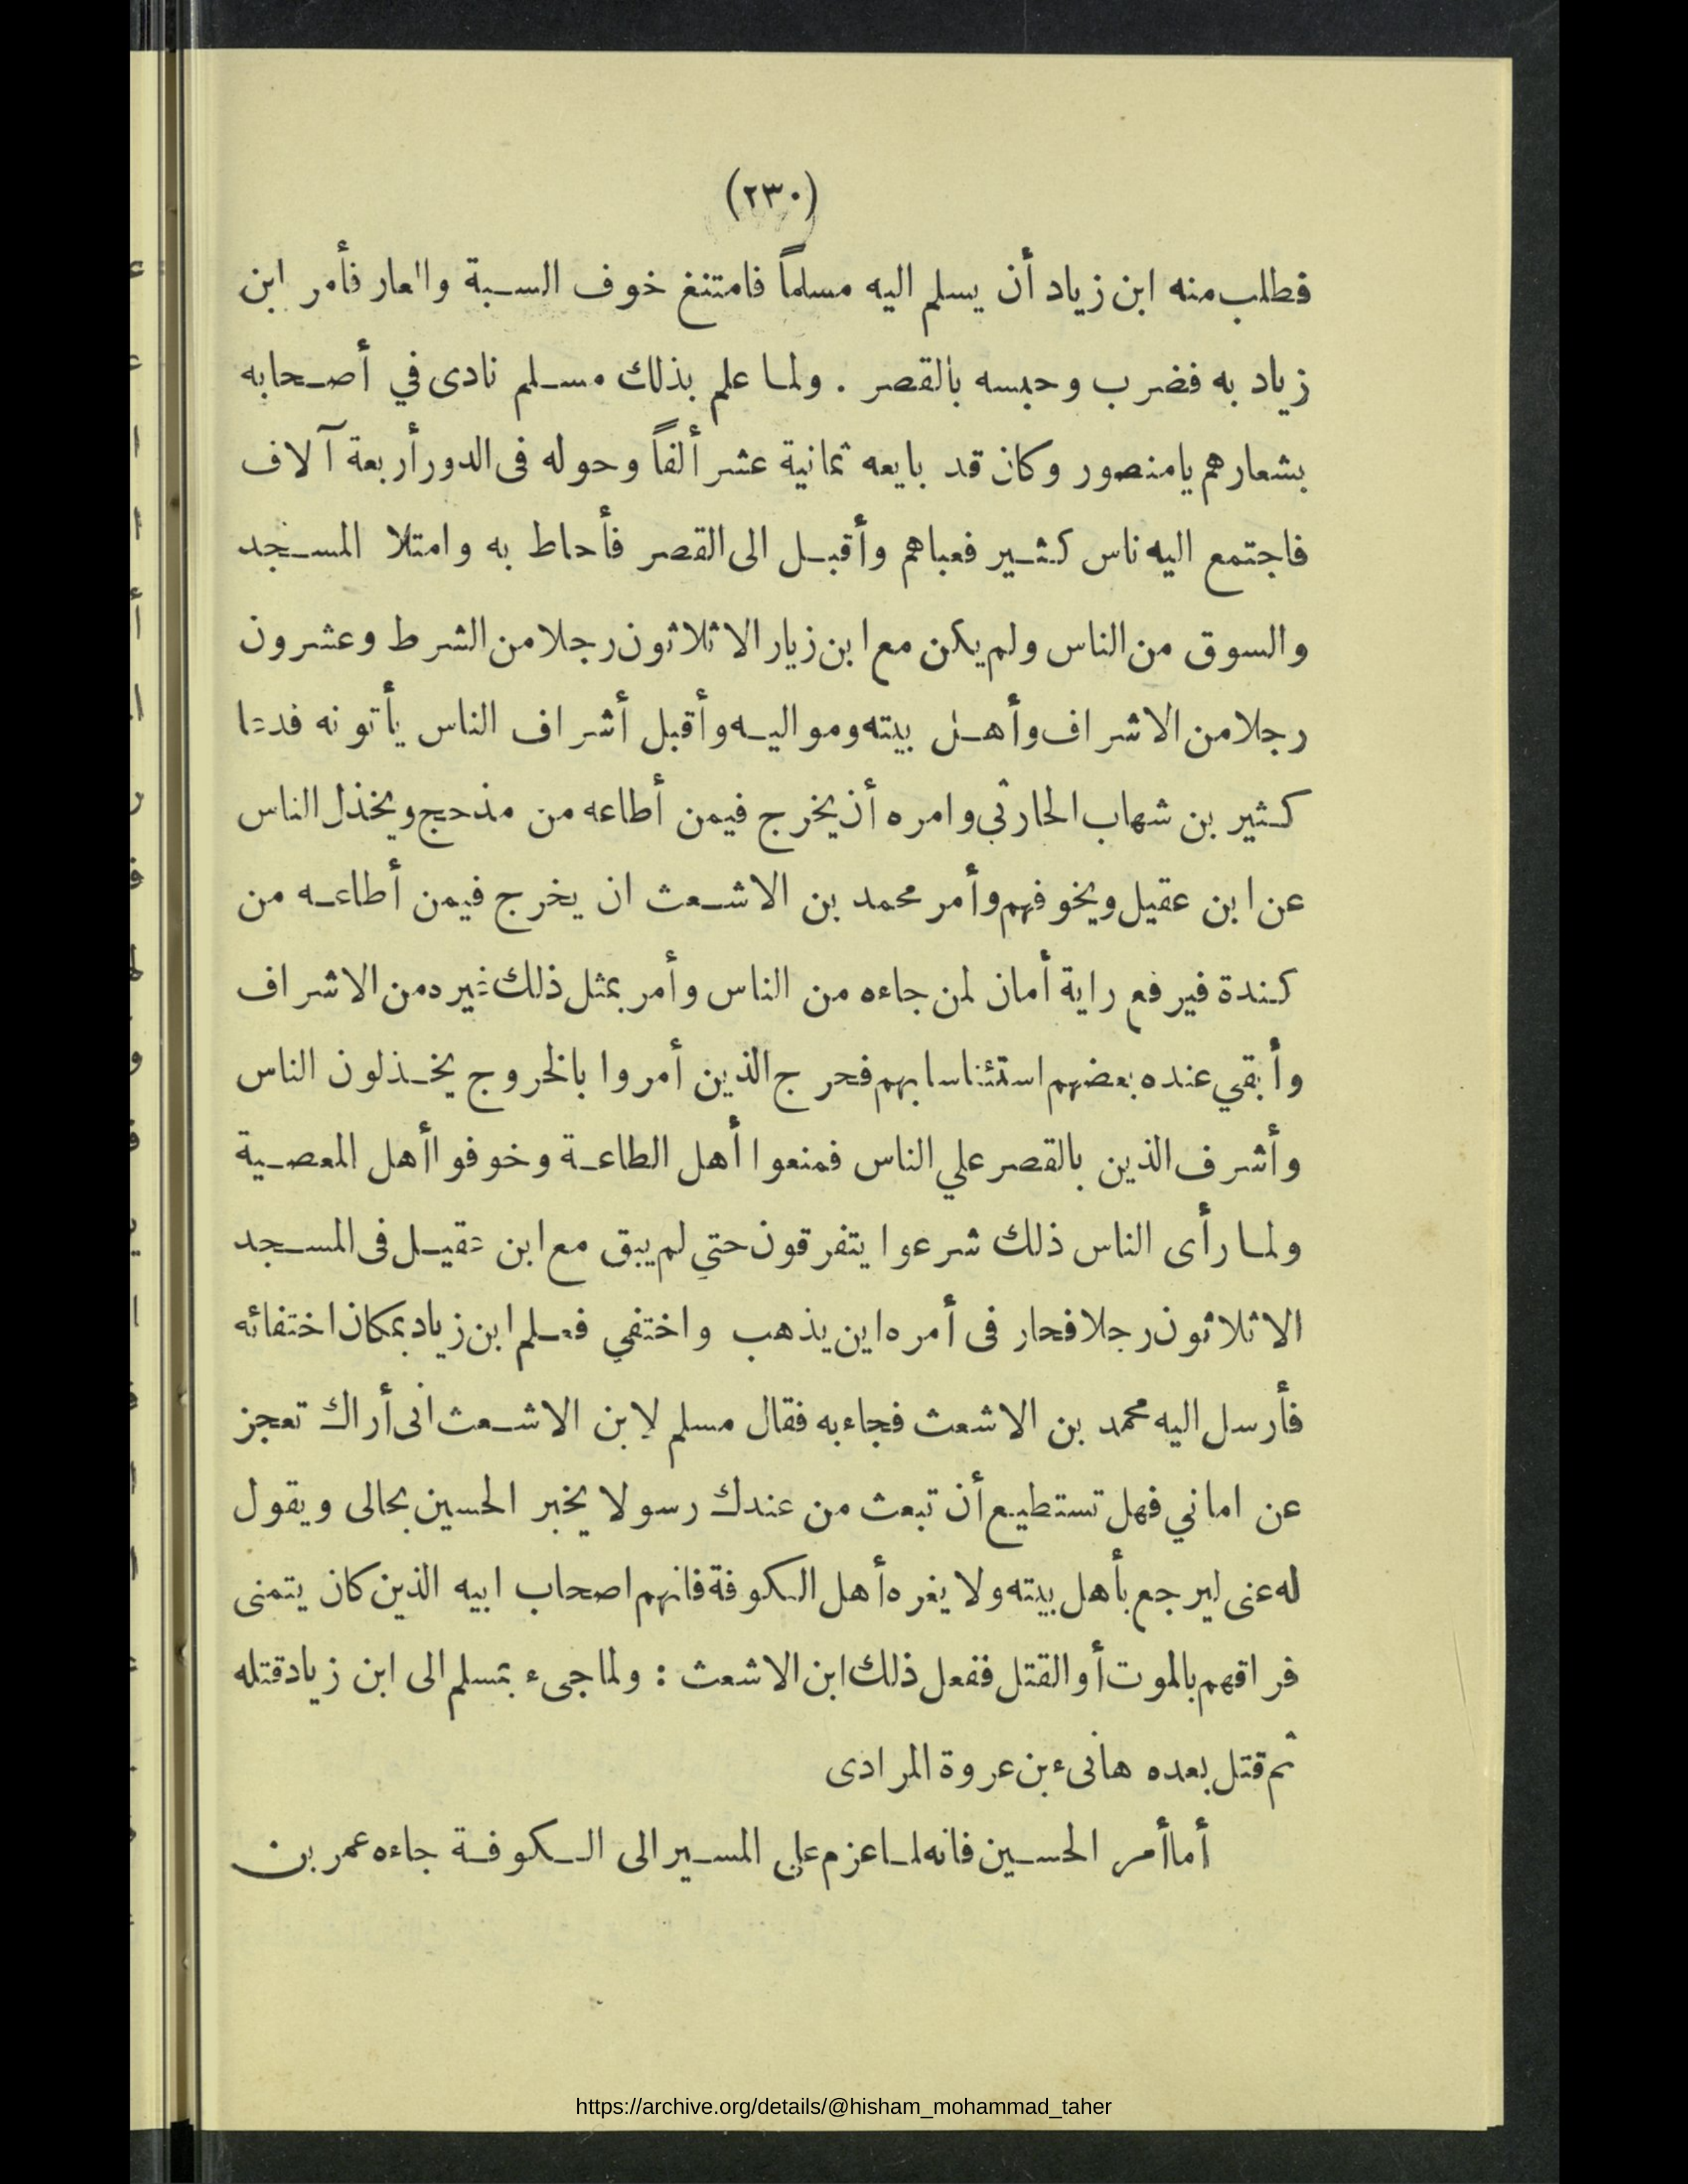 (٢٣٠)
فطلب منه ابن زياد أن يسلم اليه مسلماً فامتنغ خوف السبة والعار فأمر ابن
زياد به فضرب وحبسه بالقصر . ولما علم بذلك مسلم نادى في أصحابه
بشعارهم يامنصور وكان قد بايعه ثمانية عشر ألفاً وحوله فى الدور أربعة آلاف
فاجتمع اليه ناس كثير فعباهم وأقبل الى القصر فأحاط به وامتلا المسجد
والسوق من الناس ولم يكن مع ابن زيار الا ثلاثون رجلا من الشرط وعشرون
رجلا من الاشراف وأهل بيته ومواليه وأقبل أشراف الناس يأتونه فدعا
كثير بن شهاب الحارثي وامره أن يخرج فيمن أطاعه من مذحج ويخذل الناس
عن ابن عقيل ويخوفهم وأمر محمد بن الاشعث ان يخرج فيمن أطاعه من
كندة فيرفع راية أمان لمن جاءه من الناس وأمر بمثل ذلك غيره من الاشراف
وأبقي عنده بعضهم استئناسا بهم فحرج الذين أمروا بالخروج يخذلون الناس
وأشرف الذين بالقصر علي الناس فمنعوا أهل الطاعة وخوفوا أهل المعصية
ولما رأى الناس ذلك شرعوا يتفرقون حتي لم يبق مع ابن عقيل فى المسجد
الا ثلاثون رجلا فحار فى أمره اين يذهب واختفي فعلم ابن زياد بمكان اختفائه
فأرسل اليه محمد بن الاشعث فجاء به فقال مسلم لابن الاشعث انى أراك تعجز
عن اماني فهل تستطيع أن تبعث من عندك رسولا يخبر الحسين بحالى ويقول
له عنى ليرجع بأهل بيته ولا يغره أهل الكوفة فانهم اصحاب ابيه الذين كان يتمنى
فراقهم بالموت أو القتل ففعل ذلك ابن الاشعث : ولما جىء بمسلم الى ابن زياد قتله
ثم قتل بعده هانىء بن عروة المرادى
أما أمر الحسين فانه لما عزم علي المسير الى الكوفة جاءه عمر بن
https://archive.org/details/@hisham_mohammad_taher